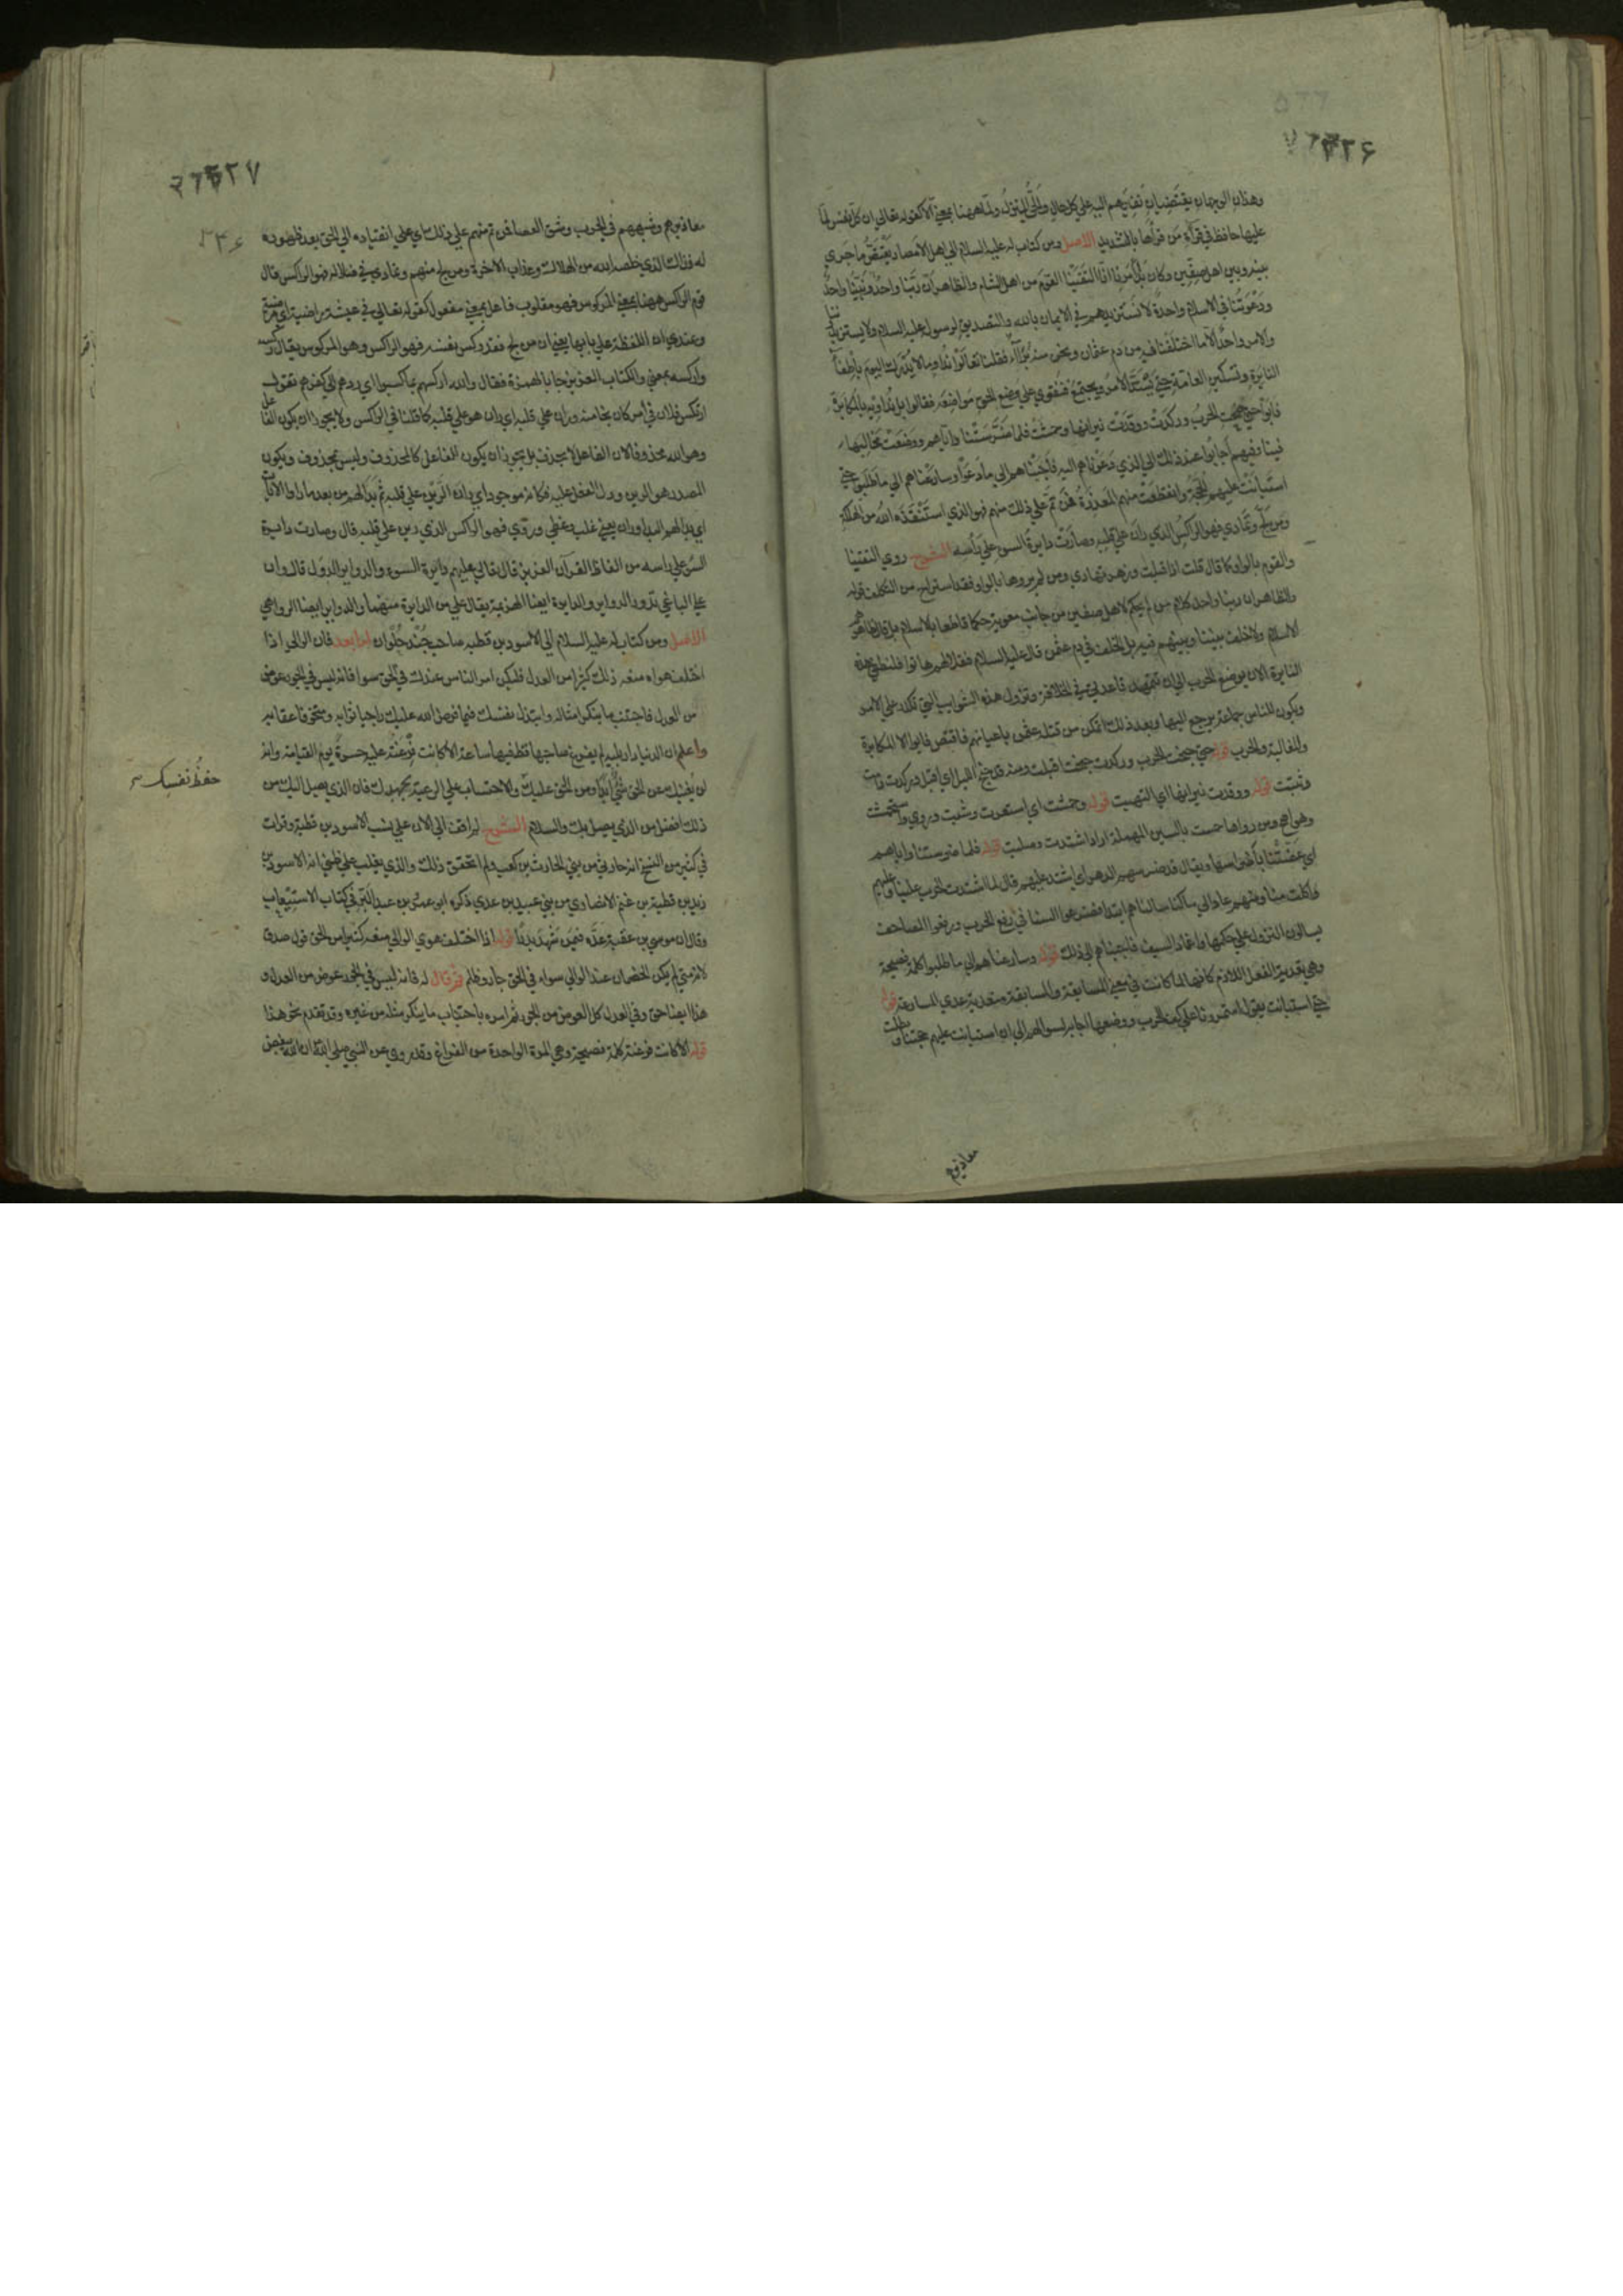 ٢٢۶
وهذان الوجهان يقتضيان نفيهم اليه على كل حال والحق المنزل ولما ههنا بمعنى الا كقوله تعالى ان كل نفس لما
عليها حافظ في قرآءة من قرأها بالتشديد الاصل ومن كتاب له عليه السلام الى اهل الامصار يقتص ما جرى
بينه وبين اهل صفين وكان بدأ امرنا انا التقينا القوم من اهل الشام والظاهر ان ربنا واحد ونبينا واحد
ودعوتنا في الاسلام واحدة لا نستزيدهم في الايمان بالله والتصديق لرسوله عليه السلام ولا يستزيدوننا
والامر واحد الا ما اختلفنا فيه من دم عثمان ونحن منه براء فقلنا تعالوا نداو ما لا يدرك اليوم باطفاء
النايرة وتسكين العامة حتى يشتد الامر ويجتمع فنقوى على وضع الحق مواضعه فقالوا بل نداويه بالمكابرة
فابوا حتى جنحت الحرب وركدت ووقدت نيرانها وحمشت فلما ضرستنا واياهم ووضعت مخالبها
فينا وفيهم اجابوا عند ذلك الى الذي دعوناهم اليه فاجبناهم الى ما دعوا وسارعناهم الى ما طلبوا حتى
استبانت عليهم الحجة وانقطعت منهم المعذرة فمن تم على ذلك منهم فهو الذي استنقذه الله من الهلكة
ومن لج وتمادى فهو الراكس الذي ران على قلبه وصارت دايرة السوء على رأسه الشرح روي التقينا
والقوم بالواو كما قال قلت اذا اقبلت وزهر تهادى ومن لم يروها بالواو فقد استراح من التكلف قوله
والظاهر ان ربنا واحد كلام من لم يحكم لاهل صفين من جانب معوية حكما قاطعا بالاسلام بل قال ظاهرهم
الاسلام ولا خلف بيننا وبينهم فيه بل الخلف في دم عثمن قال عليه السلام فقلنا لهم هاتوا فلنطفي هذه
النايرة الان بوضع الحرب الى ان تتمهد قاعدتي في الخلافة وتزول هذه الشوايب التي تكدر على الامر
ويكون للناس جماعة يرجع اليها وبعد ذلك اتمكن من قتلة عثمن باعيانهم فاقتص فابوا الا المكابرة
والمغالبة والحرب قوله حتى جنحت الحرب وركدت جنحت اقبلت ومنه قد جنح الليل اي اقبل وركدت دامت
وثبتت قوله ووقدت نيرانها اي التهبت قوله وحمشت اي استعرت وشبت وروي واستحمشت
وهو اصح ومن رواها حمست بالسين المهملة اراد اشتدت وصلبت قوله فلما ضرستنا واياهم
اي عضتنا باضراسها ويقال ضرسهم الدهر اي اشتد عليهم قال لما اشتدت الحرب علينا وعليهم
واكلت منا ومنهم عادوا الى ما كنا سالناهم ابتداء وضرعوا الينا في رفع الحرب ورفعوا المصاحف
يسالون النزول على حكمها واغماد السيف فاجبناهم الى ذلك قوله وسارعناهم الى ما طلبوا كلمة فصيحة
وهي تعدية الفعل اللازم كانها لما كانت في معنى المسابقة والمسابقة متعدية عدي المسارعة قوله
حتى استبانت يقول استمررنا على كف الحرب ووضعها اجابة لسوالهم الى ان استبانت عليهم حجتنا وبطلت
معاذيرهم
٢٢٧
معاذيرهم وشبههم في الحرب وشق العصا فمن تم منهم على ذلك اي على انقياده الى الحق بعد ظهوره
له فذاك الذي خلصه الله من الهلاك وعذاب الاخرة ومن لج منهم وتمادى في ضلاله فهو الراكس قال
قوم الراكس ههنا بمعنى المركوس فهو مقلوب فاعل بمعنى مفعول كقوله تعالى في عيشة راضية اي مرضية
وعندي ان اللفظة على بابها يعني ان من لج فقد ركس نفسه فهو الراكس وهو المركوس يقال ركسه
واركسه بمعنى والكتاب العزيز جا بالهمزة فقال والله اركسهم بما كسبوا اي ردهم الى كفرهم تقول
ارتكس فلان في امر كان نجا منه وران على قلبه اي ران هو على قلبه كما قلنا في الراكس ولا يجوز ان يكون الفاعل
وهو الله محذوفا لان الفاعل لا يحذف بل يجوز ان يكون الفاعل كالمحذوف وليس بمحذوف ويكون
المصدر هو الرين ودل الفعل عليه فكانه موجود اي ران الرين على قلبه ثم بدا لهم من بعد ما راوا الايات
اي بدا لهم البداء وران بمعنى غلب وغطى وروي فهو الراكس الذي رين على قلبه قال وصارت دايرة
السوء على راسه من الفاظ القرآن العزيز قال تعالى عليهم دايرة السوء والدواير الدول قال وان
على الباغي تدور الدواير والدايرة ايضا الهزيمة يقال على من الدايرة منهما والدواير ايضا الدواهي
الاصل ومن كتاب له عليه السلام الى الاسود بن قطبة صاحب جند حلوان اما بعد فان الوالي اذا
اختلف هواه منعه ذلك كثيرا من العدل فليكن امر الناس عندك في الحق سوا فانه ليس في الجور عوض
من العدل فاجتنب ما ينكر امثاله وابتذل نفسك فيما افترض الله عليك راجيا ثوابه ومتخوفا عقابه
واعلم ان الدنيا دار بلية لم يفرغ صاحبها قط فيها ساعة الا كانت فرغته عليه حسرة يوم القيامة وانه
لن يغنيك عن الحق شيء ابدا ومن الحق عليك والاحتساب على الرعية بجهدك فان الذي يصل اليك من
حفظ نفسك
ذلك افضل من الذي يصل بك والسلام الشرح لم اقف الى الان على نسب الاسود بن قطبة وقرات
في كثير من النسخ انه حارثي من بني الحارث بن كعب ولم اتحقق ذلك والذي يغلب على ظني انه الاسود بن
زيد بن قطبة بن غنم الانصاري من بني عبيد بن عدي ذكره ابو عمر بن عبد البر في كتاب الاستيعاب
وقال ان موسى بن عقبة عده فيمن شهد بدرا قوله اذا اختلف هوى الوالي منعه كثيرا من الحق قول صدق
لانه متى لم يكن الخصمان عند الوالي سواء في الحق جار وظلم ثم قال له فانه ليس في الجور عوض من العدل و
هذا ايضا حق وفي العدل كل العوض من الجور ثم امره باجتناب ما ينكر مثله من غيره وقد تقدم نحو هذا
قوله الا كانت فرغته كلمة فصيحة وهي المرة الواحدة من الفراغ وقد روي عن النبي صلى الله ان الله يبغض